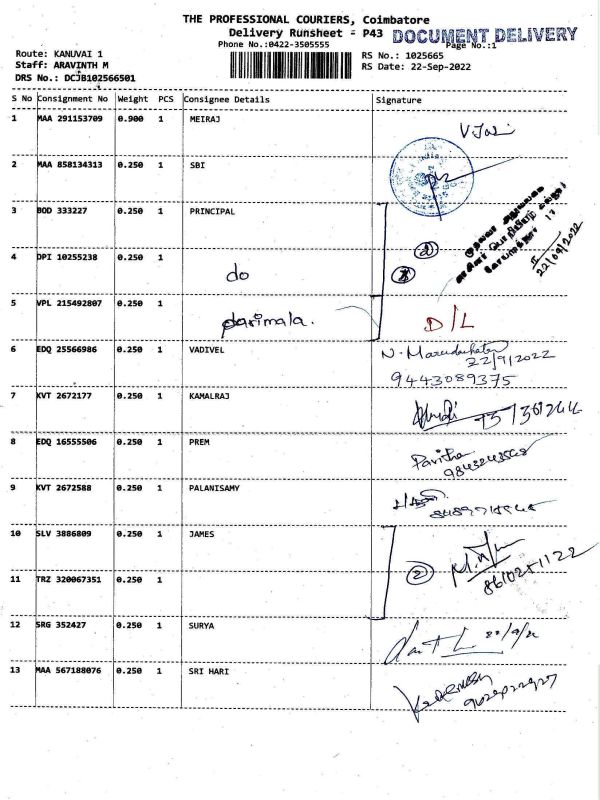 THE PROFESSIONAL COURIERS, Coimbatore
Delivery Runsheet - P43 DOCUMENT DELIVERY
Phone No.:0422-3505555 Page No.:1
Route: KANUVAI 1
Staff: ARAVINTH M
DRS No.: DCJB102566501
RS No.: 1025665
RS Date: 22-Sep-2022
S No Consignment No Weight PCS Consignee Details Signature
1 MAA 291153709 0.900 1 MEIRAJ
2 MAA 858134313 0.250 1 SBI
3 BOD 333227 0.250 1 PRINCIPAL
22/09/2022
4 DPI 10255238 0.250 1 do 2
5 VPL 215492807 0.250 1 parimala. D/L
6 EDQ 25566986 0.250 1 VADIVEL
22/9/2022
9443089375
7 KVT 2672177 0.250 1 KAMALRAJ
8 EDQ 16555506 0.250 1 PREM Pavitha
9 KVT 2672588 0.250 1 PALANISAMY
10 SLV 3886809 0.250 1 JAMES
11 TRZ 320067351 0.250 1 2
12 SRG 352427 0.250 1 SURYA
13 MAA 567188076 0.250 1 SRI HARI